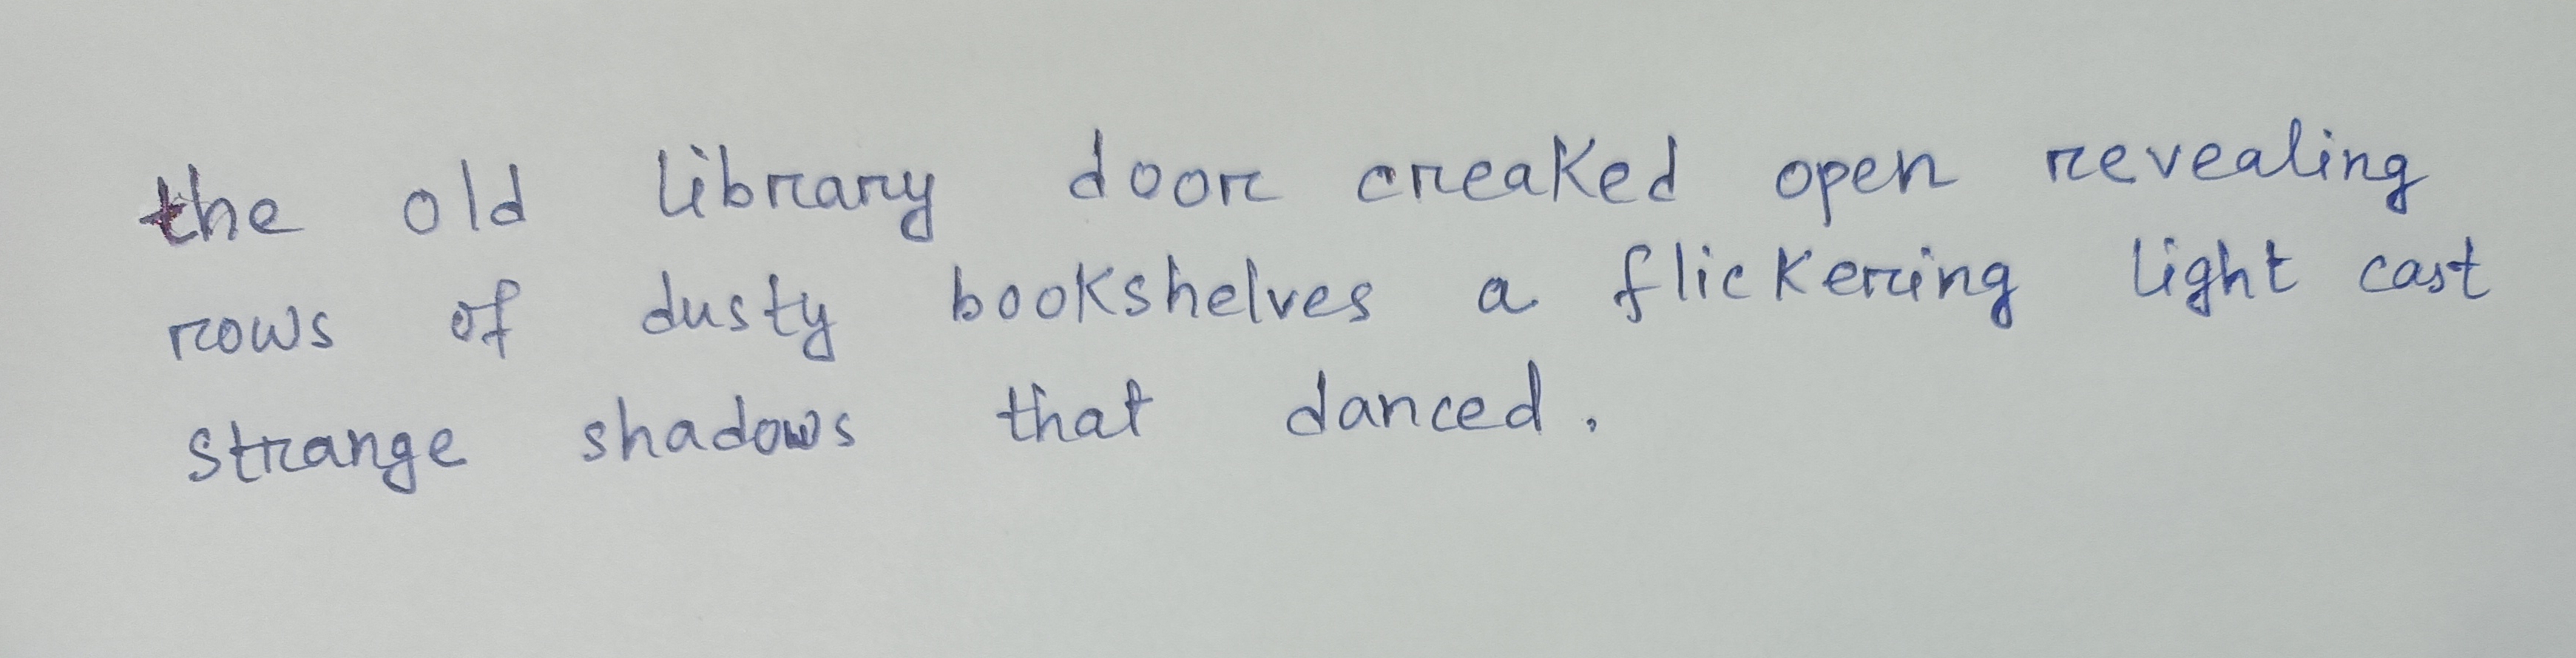 the old library door creaked open revealing
rows of dusty bookshelves a flickering light cast
strange shadows that danced.